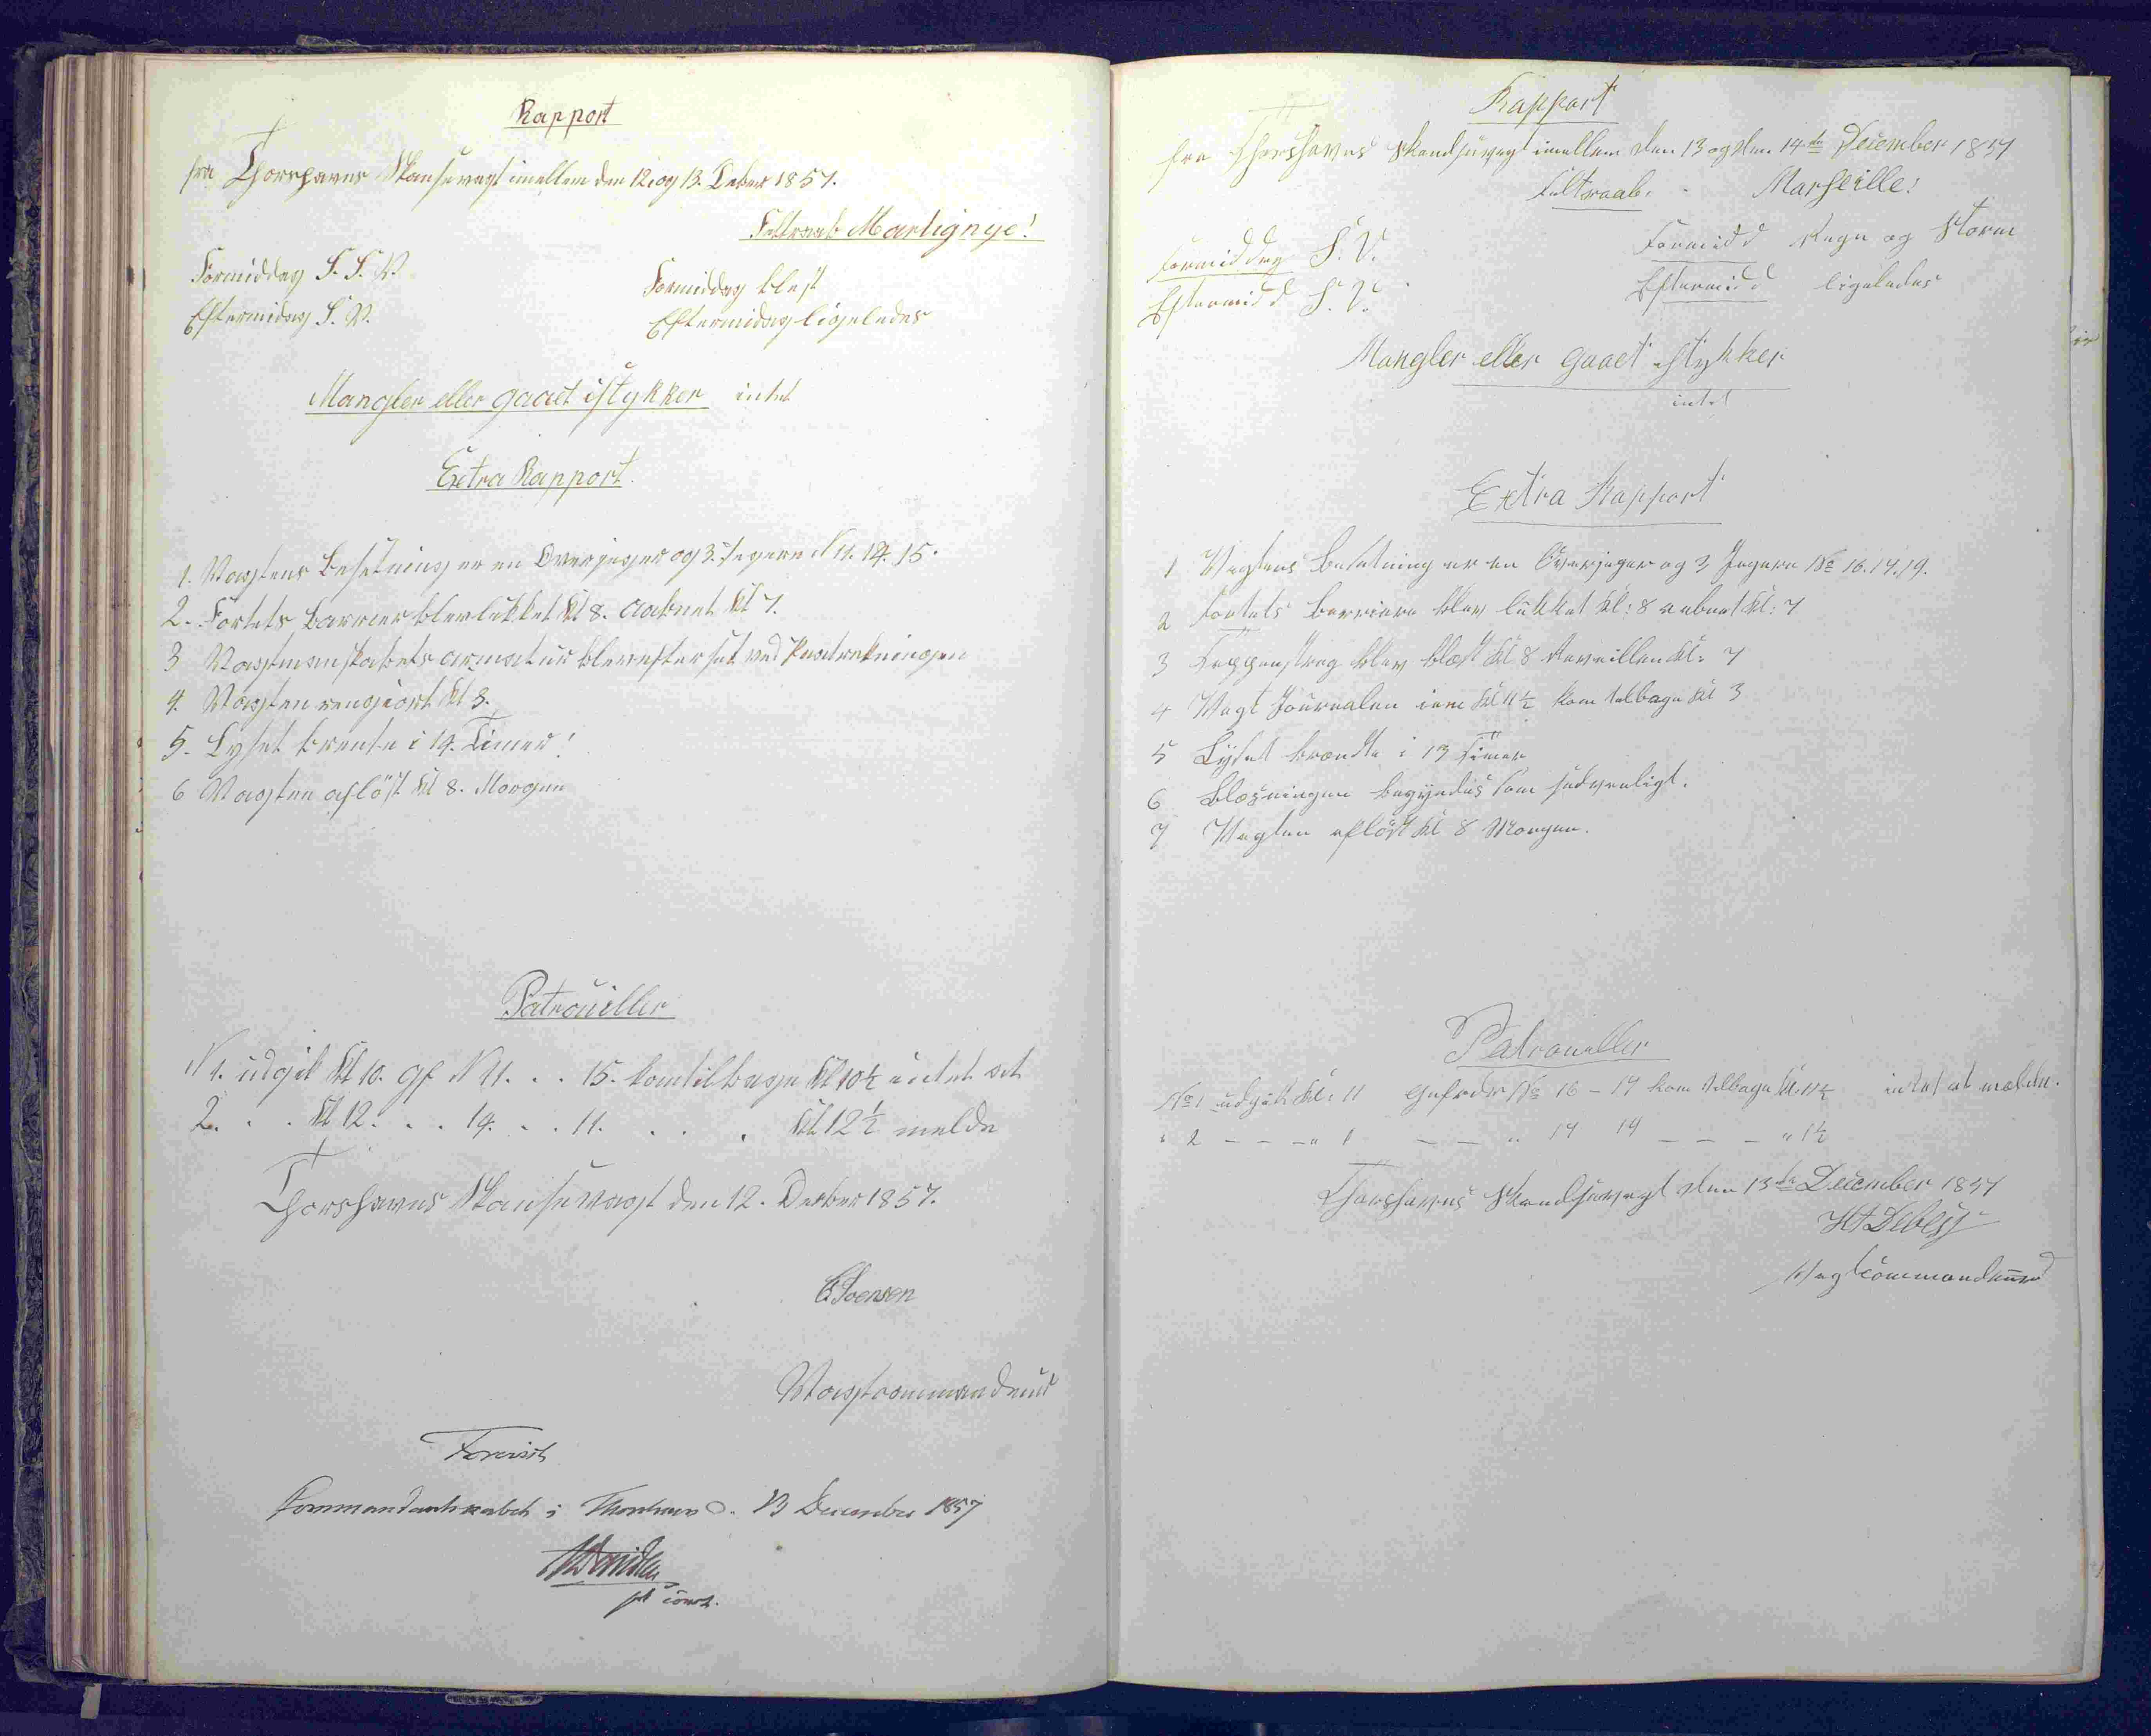 Rapport
fra Thorshavns Skansevagt imellem den 12. og 13. Debr 1857.
Feltraab Martignye!
Formiddag S. S. V.
Eftermidag S. V.
Formiddag blest
Eftermidag ligeledes
Mangler eller gaaet istykker intet
Extra Rapport.
1. Vagtens Besetning er en Overjeger og 3 Jegere N 11. 14. 15.
2. Fortets Barrier blev lukket Kl 8. aabnet Kl 7.
3 Vagtmanskabets armatur blev efterset ved
4. Vagten rengiort Kl 3.
5. Lyset brente i 14. Timer!
6 Vagten aflöst Kl 8. Morgen
Patrouiller
N 1. udgik Kl 10. gf N 11. . . 15. kom tilbage Kl 10½ intet at
2. . . Kl 12. . . 14. . . 11. . . . Kl 12½ melde
Thorshavns Skansevagt den 12. Decber 1857.
Joensen
Vagtcommandeur
Forevist
Kommandantskabet i Thorshavn d. 13 December 1857
Rapport
fra Thorshavns Skandsevagt imellem den 13 og den 14de December 1857
Feltraab. Marseille!
Formiddag S. V.
Eftermidd S. V.
Formidd Regn og Storm
Eftermidd ligeledes
Mangler eller gaaet istykker
intet
Extra Rapport
1 Vagtens Besetning er en Overjeger og 3 Jegere No 16. 17. 19.
2 Fortets Barriere blev lukket Kl: 8 aabnet Kl: 7
3 Tappenstreg blev blæst Kl 8 Reveillen Kl: 7
4 Vagt Journalen inne Kl 11½ kom tilbage Kl 3
5 Lyset brændte i 13 Timer
6 Blæsningen begyndes som sedvanligt.
7 Vagten aflöst Kl 8 Morgen.
Patrouiller
No 1 udgik Kl: 11 Gefreder No 16 - 17 kom tilbage Kl. 11½ intet at melde.
" 2 - - - " 1 - - " 17 19 - - - " 1½
Thorshavns Skandsevagt den 13de December 1857
Debess
Vagtcommandeur